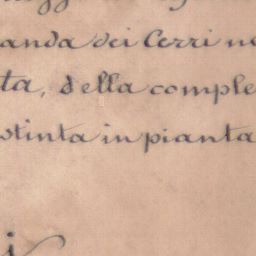 anda dei Cerri n
ta, della comple
stinta in pianta